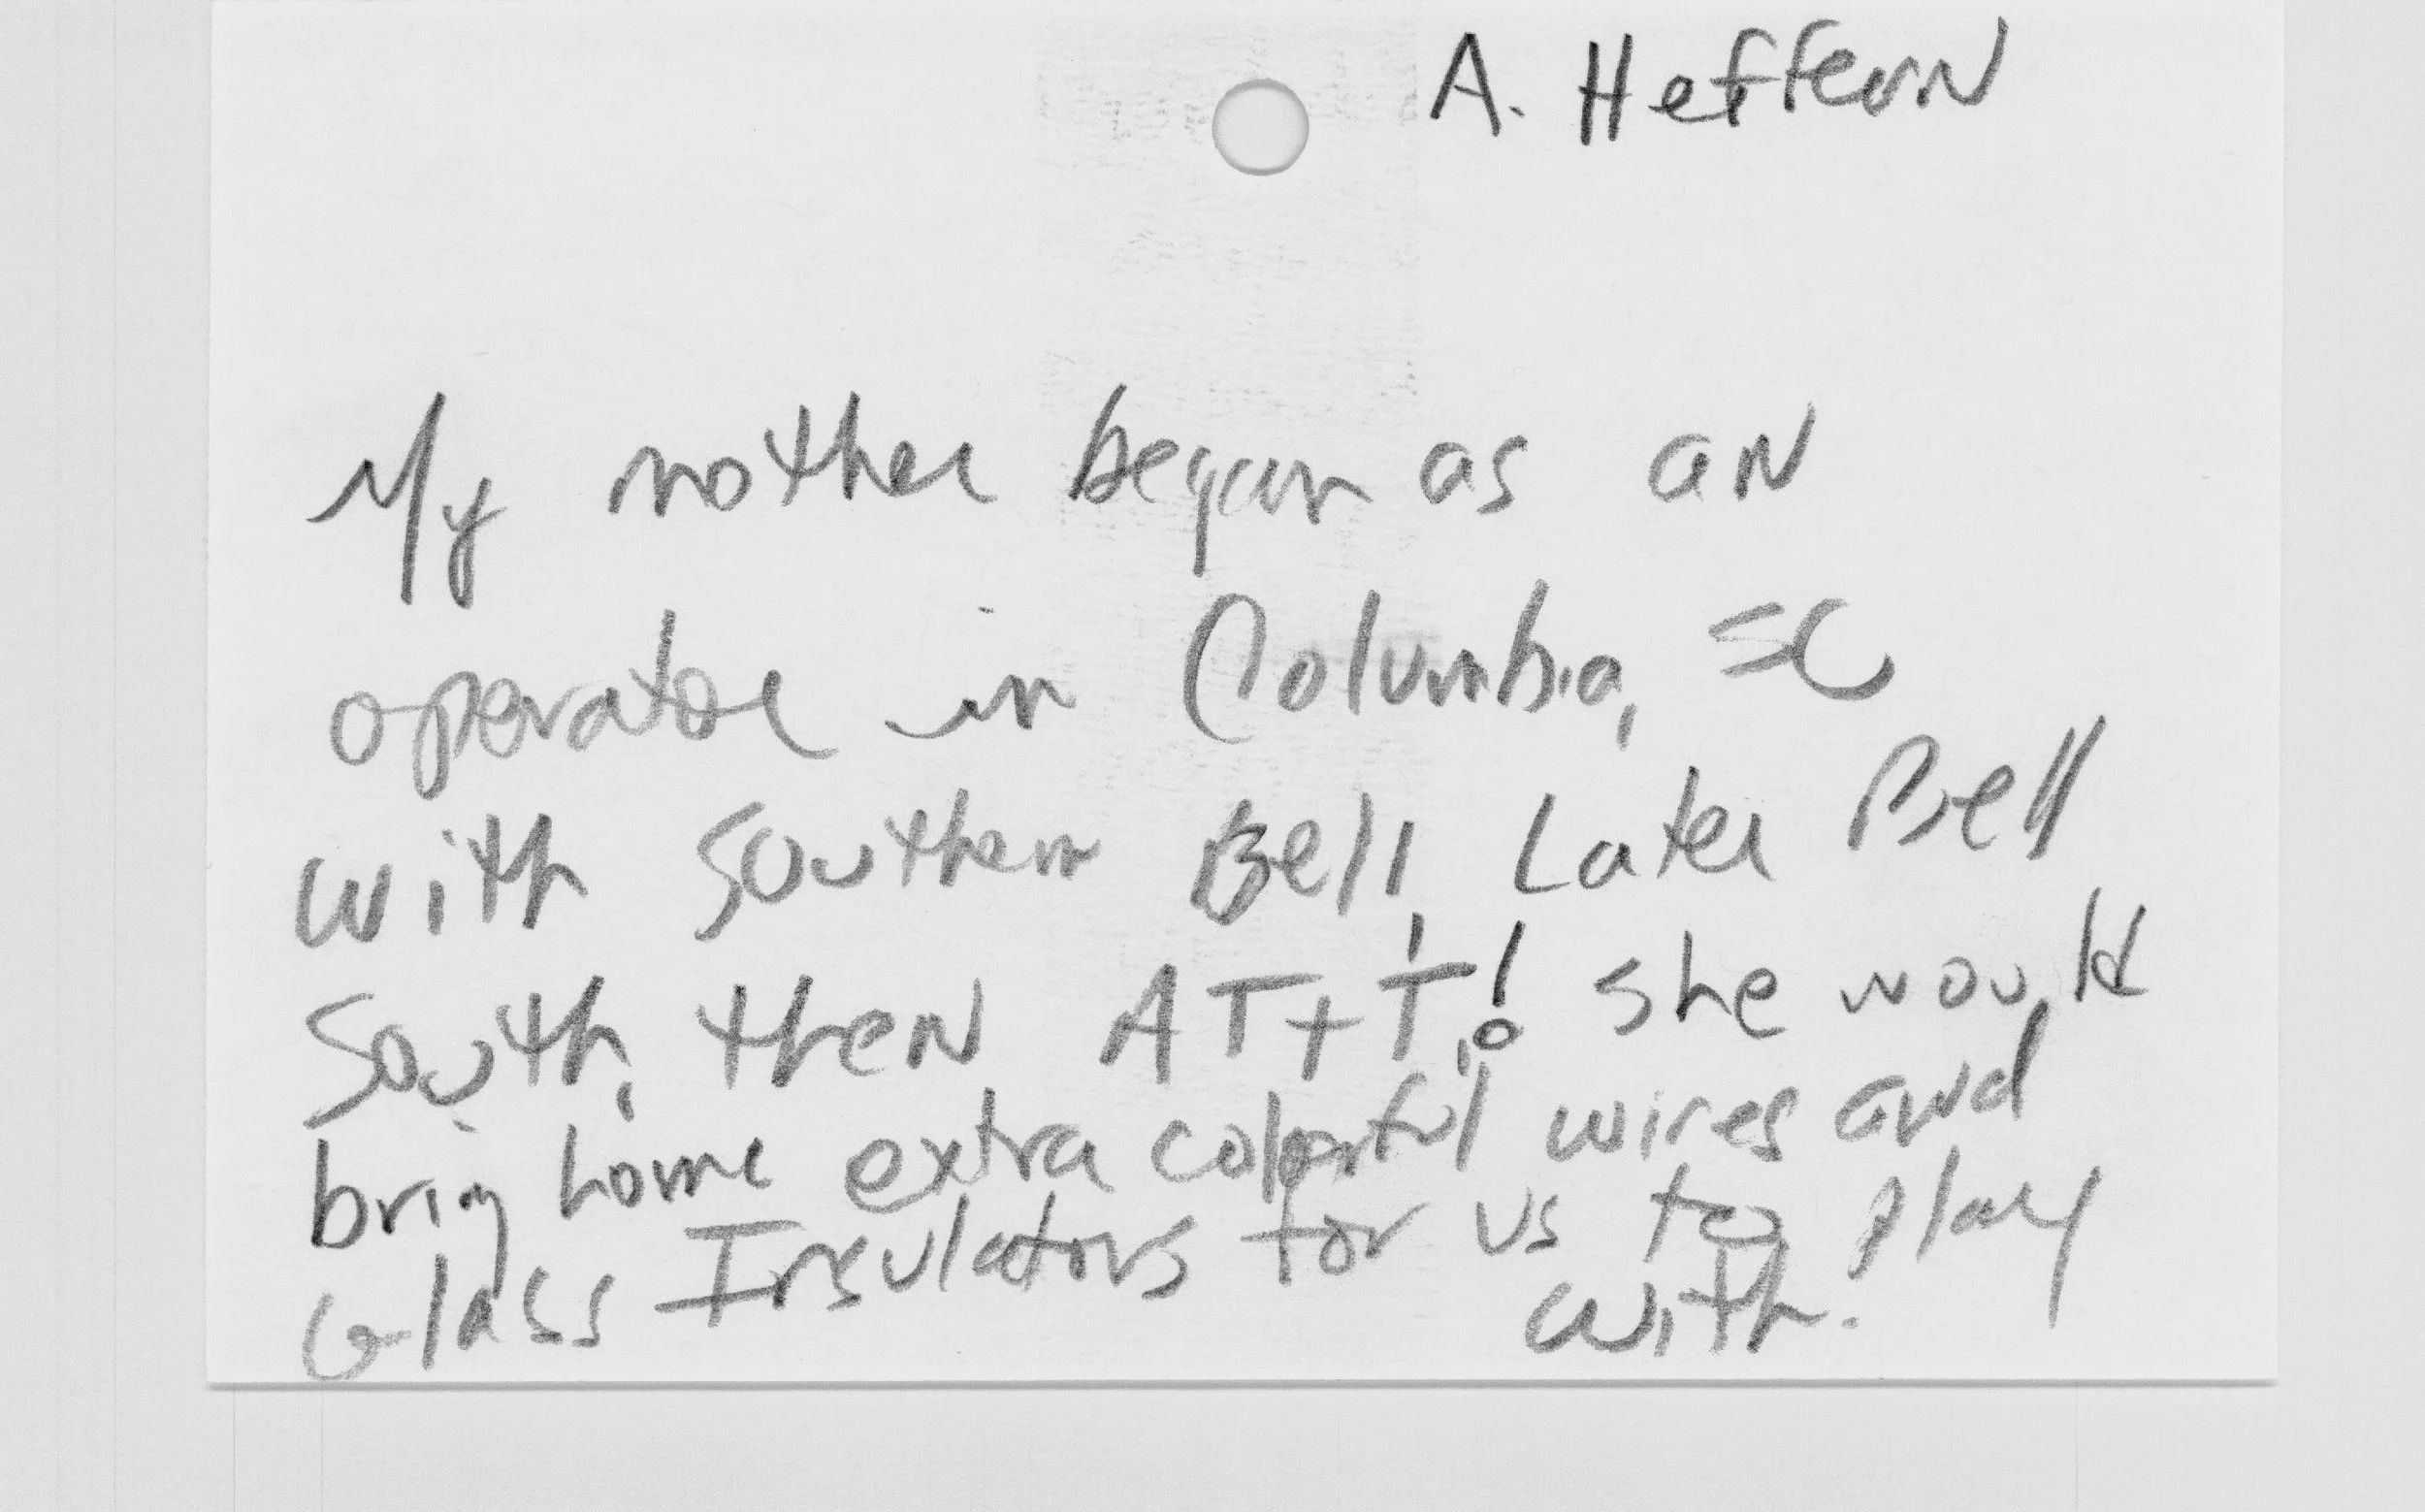 A. Heffern
My mother began as an
operator in Columbia, SC
with Southern Bell, Later Bell
South, then AT+T! She would
bring home extra colorful wires and
Glass Insulators for us to play
with.